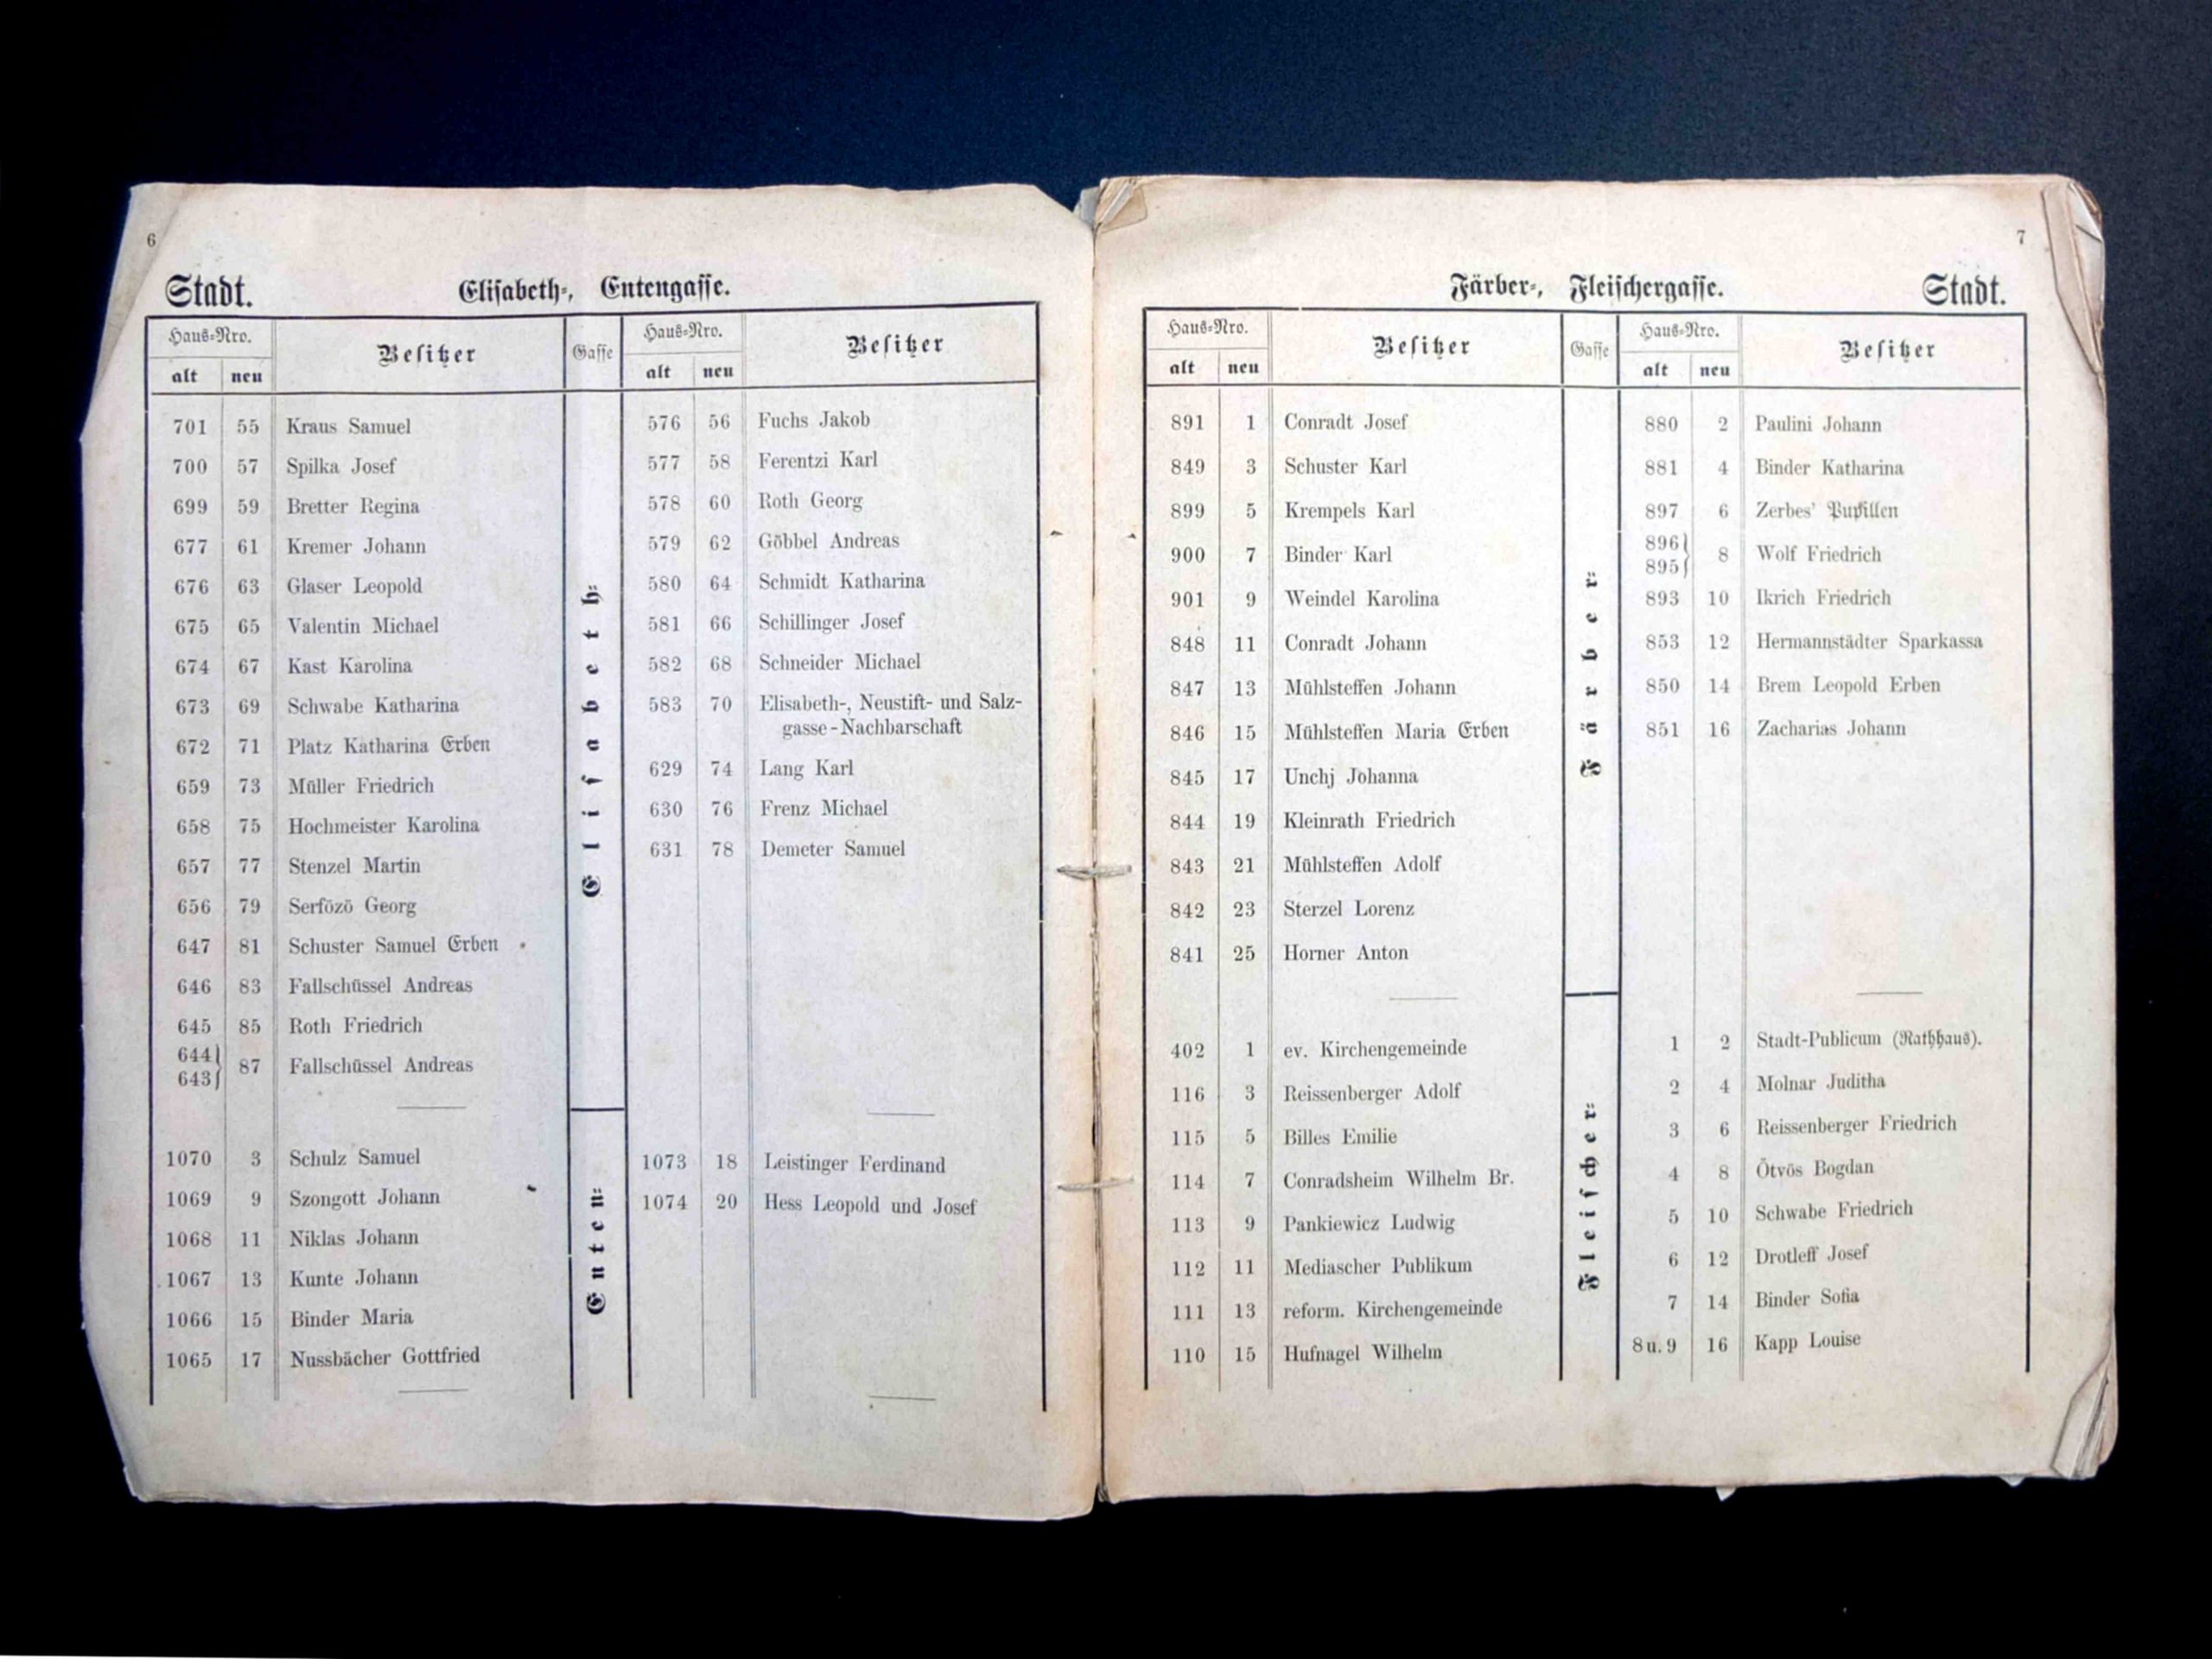 6
Stadt. Elisabeth-, Entengasse.
Haus-Nro. Besitzer Gasse Haus-Nro. Besitzer
alt neu alt neu
701 55 Kraus Samuel
700 57 Spilka Josef
699 59 Bretter Regina
677 61 Kremer Johann
676 63 Glaser Leopold
675 65 Valentin Michael
674 67 Kast Karolina
673 69 Schwabe Katharina
672 71 Platz Katharina Erben
659 73 Müller Friedrich
658 75 Hochmeister Karolina
657 77 Stenzel Martin
656 79 Serfözö Georg
647 81 Schuster Samuel Erben
646 83 Fallschüssel Andreas
645 85 Roth Friedrich
644
643 87 Fallschüssel Andreas
Elisabeth-
576 56 Fuchs Jakob
577 58 Ferentzi Karl
578 60 Roth Georg
579 62 Göbbel Andreas
580 64 Schmidt Katharina
581 66 Schillinger Josef
582 68 Schneider Michael
583 70 Elisabeth-, Neustift- und Salz-
gasse-Nachbarschaft
629 74 Lang Karl
630 76 Frenz Michael
631 78 Demeter Samuel
1070 3 Schulz Samuel
1069 9 Szongott Johann
1068 11 Niklas Johann
1067 13 Kunte Johann
1066 15 Binder Maria
1065 17 Nussbächer Gottfried
Enten-
1073 18 Leistinger Ferdinand
1074 20 Hess Leopold und Josef
7
Färber-, Fleischergasse. Stadt.
Haus-Nro. Besitzer Gasse Haus-Nro. Besitzer
alt neu alt neu
891 1 Conradt Josef
849 3 Schuster Karl
899 5 Krempels Karl
900 7 Binder Karl
901 9 Weindel Karolina
848 11 Conradt Johann
847 13 Mühlsteffen Johann
846 15 Mühlsteffen Maria Erben
845 17 Unchj Johanna
844 19 Kleinrath Friedrich
843 21 Mühlsteffen Adolf
842 23 Sterzel Lorenz
841 25 Horner Anton
Färber-
880 2 Paulini Johann
881 4 Binder Katharina
897 6 Zerbes' Pupillen
896
895 8 Wolf Friedrich
893 10 Ikrich Friedrich
853 12 Hermannstädter Sparkassa
850 14 Brem Leopold Erben
851 16 Zacharias Johann
402 1 ev. Kirchengemeinde
116 3 Reissenberger Adolf
115 5 Billes Emilie
114 7 Conradsheim Wilhelm Br.
113 9 Pankiewicz Ludwig
112 11 Mediascher Publikum
111 13 reform. Kirchengemeinde
110 15 Hufnagel Wilhelm
Fleischer-
1 2 Stadt-Publicum (Rathhaus).
2 4 Molnar Juditha
3 6 Reissenberger Friedrich
4 8 Ötvös Bogdan
5 10 Schwabe Friedrich
6 12 Drotleff Josef
7 14 Binder Sofia
8 u. 9 16 Kapp Louise